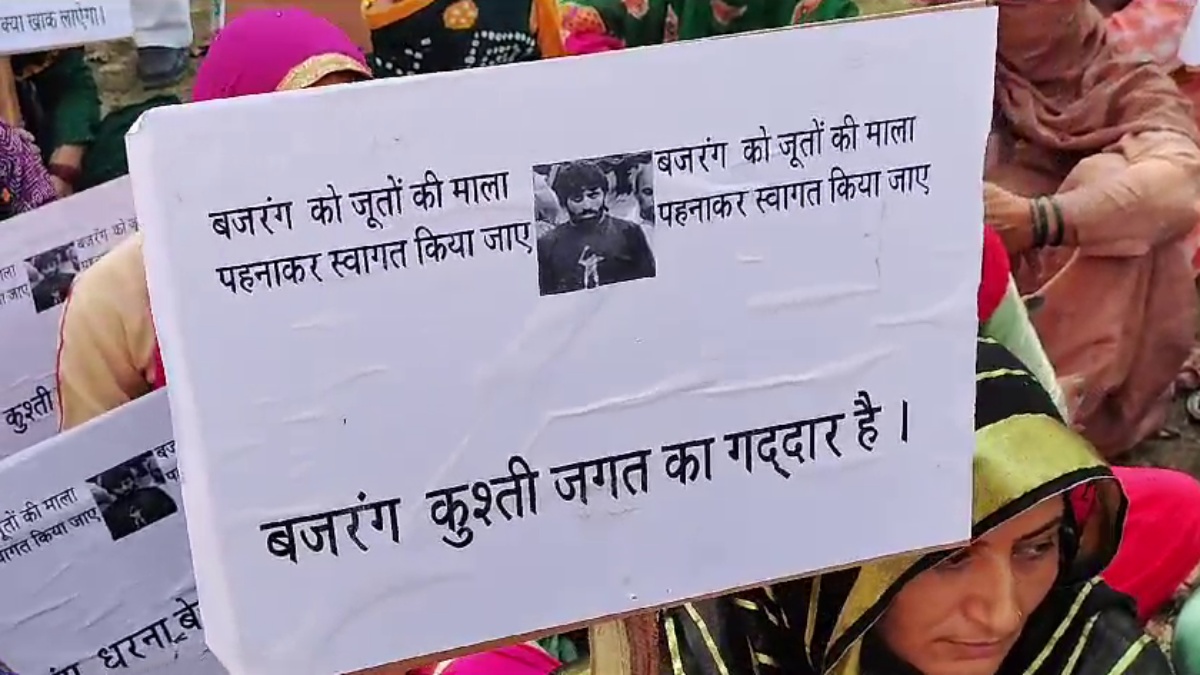 क्या खाक लाऐंगा।
बजरंग को जूतों की माला
पहनाकर स्वागत किया जाए
बजरंग को जूतों की माला
पहनाकर स्वागत किया जाए
बजरंग कुश्ती जगत का गद्दार है।
बजरंग को
जाए
कुश्ती
की माला
किया जाए
धरना